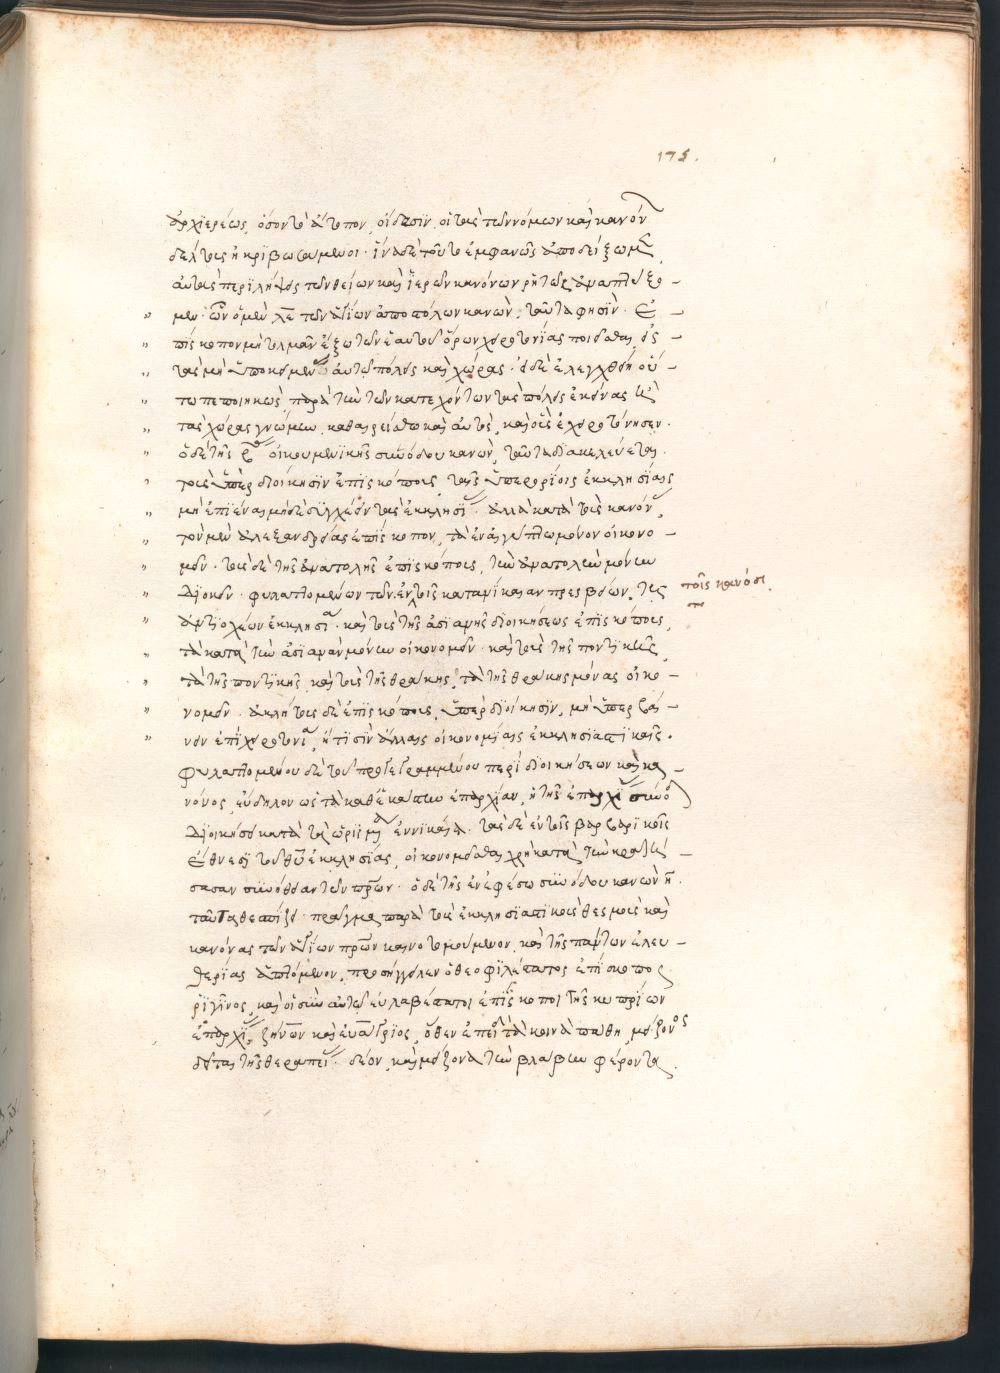 175.
ἀρχιερέως, ὅσον τὸ ἄτοπον, οἴδασιν οἱ τοὺς τῶν νόμων καὶ κανόνων
δέλτους ἠκριβωσάμενοι· ἵνα δὲ τοῦτο ἐμφανῶς ἀποδείξωμεν,
αὐτὰς περιλήψεις τῶν θείων καὶ ἱερῶν κανόνων ῥητῶς ἀναπτύξο-
μεν· ὧν ὁ μὲν λε τῶν ἁγίων ἀποστόλων κανὼν, ταῦτα φησὶν· Ἐ-
πίσκοπον μὴ τολμᾶν ἔξω τῶν ἑαυτοῦ ὅρων χειροτονίας ποιεῖσθαι, εἰς
τὰς μὴ ὑποκειμένας αὐτῷ πόλεις καὶ χώρας· εἰ δὲ ἐλεγχθείη οὕ-
τω πεποιηκὼς παρὰ τὴν τῶν κατεχόντων τὰς πόλεις ἐκείνας ἢ
τὰς χώρας γνώμην, καθαιρείσθω καὶ αὐτὸς, καὶ οὓς ἐχειροτόνησεν.
ὁ δὲ τῆς οἰκουμενικῆς συνόδου κανὼν, ταῦτα διακελεύεται.
τοὺς ὑπὲρ διοίκησιν ἐπισκόπους, ταῖς ὑπερορίοις ἐκκλησίαις
μὴ ἐπιέναι μηδὲ συγχέειν τὰς ἐκκλησίας· ἀλλὰ κατὰ τοὺς κανόνας,
τὸν μὲν ἀλεξανδρείας ἐπίσκοπον, τὰ ἐν αἰγύπτῳ μόνον οἰκονο-
μεῖν· τοὺς δὲ τῆς ἀνατολῆς ἐπισκόπους, τὴν ἀνατολὴν μόνην
διοικεῖν· φυλαττομένων τῶν ἐν τοῖς κατὰ νίκαιαν πρεσβείων, τῆς
τοῖς κανόσι
ἀντιοχέων ἐκκλησίας· καὶ τοὺς τῆς ἀσιανῆς διοικήσεως ἐπισκόπους,
τὰ κατὰ τὴν ἀσιανὴν μόνην οἰκονομεῖν· καὶ τοὺς τῆς ποντικῆς,
τὰ τῆς ποντικῆς, καὶ τοὺς τῆς θράκης, τὰ τῆς θρακῆς μόνας οἰκο-
νομεῖν· ἀκλήτους δὲ ἐπισκόπους, ὑπὲρ διοίκησιν, μὴ ὑπερβαί-
νειν ἐπὶ χειροτονία, ἤ τισιν ἄλλαις οἰκονομίαις ἐκκλησιαστικαῖς.
φυλαττομένου δὲ τοῦ προγεγραμμένου περὶ διοικήσεων κα κα-
νόνος, εὔδηλον ὡς τὰ καθ' ἑκάστην ἐπαρχίαν, ἡ τῆς ἐπαρχίας σύνοδος
διοικήσει κατὰ τὰ ὡρισμένα ἐν νικαία. τὰς δὲ ἐν τοῖς βαρβαρικοῖς
ἔθνεσι τοῦ θυ ἐκκλησίας, οἰκονομεῖσθαι χρὴ κατὰ τὴν κρατή-
σασαν συνήθειαν τῶν πρων. ὁ δὲ τῆς ἐν ἐφέσω συνόδου κανὼν η.
ταῦτα θεσπίζει· πρᾶγμα παρὰ τοὺς ἐκκλησιαστικοὺς θεσμοὺς καὶ
κανόνας τῶν ἁγίων πρων καινοτομούμενον, καὶ τῆς πάντων ἐλευ-
θερίας ἁπτόμενον, προσήγγειλεν ὁ θεοφιλέστατος ἐπίσκοπος
ῥιγῖνος, καὶ οἱ σὺν αὐτῷ εὐλαβέστατοι ἐπίσκοποι τῆς κυπρίων
ἐπαρχίας, ζήνων καὶ εὐάγριος, ὅθεν ἐπεὶ τὰ κοινὰ πάθη, μείζονος
δεῖται τῆς θεραπείας· δέον, καὶ μείζονα τὴν βλάβην φέροντα.